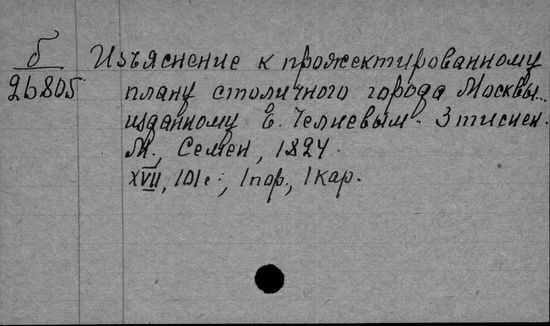 б Изъяснение к прожектированному
26805 плану столичного города Москвы..
изданному Е. Челиевым. 3 тиснен.
М., Семен, 1824.
XVII, 101с., 1 пор., 1 кар.